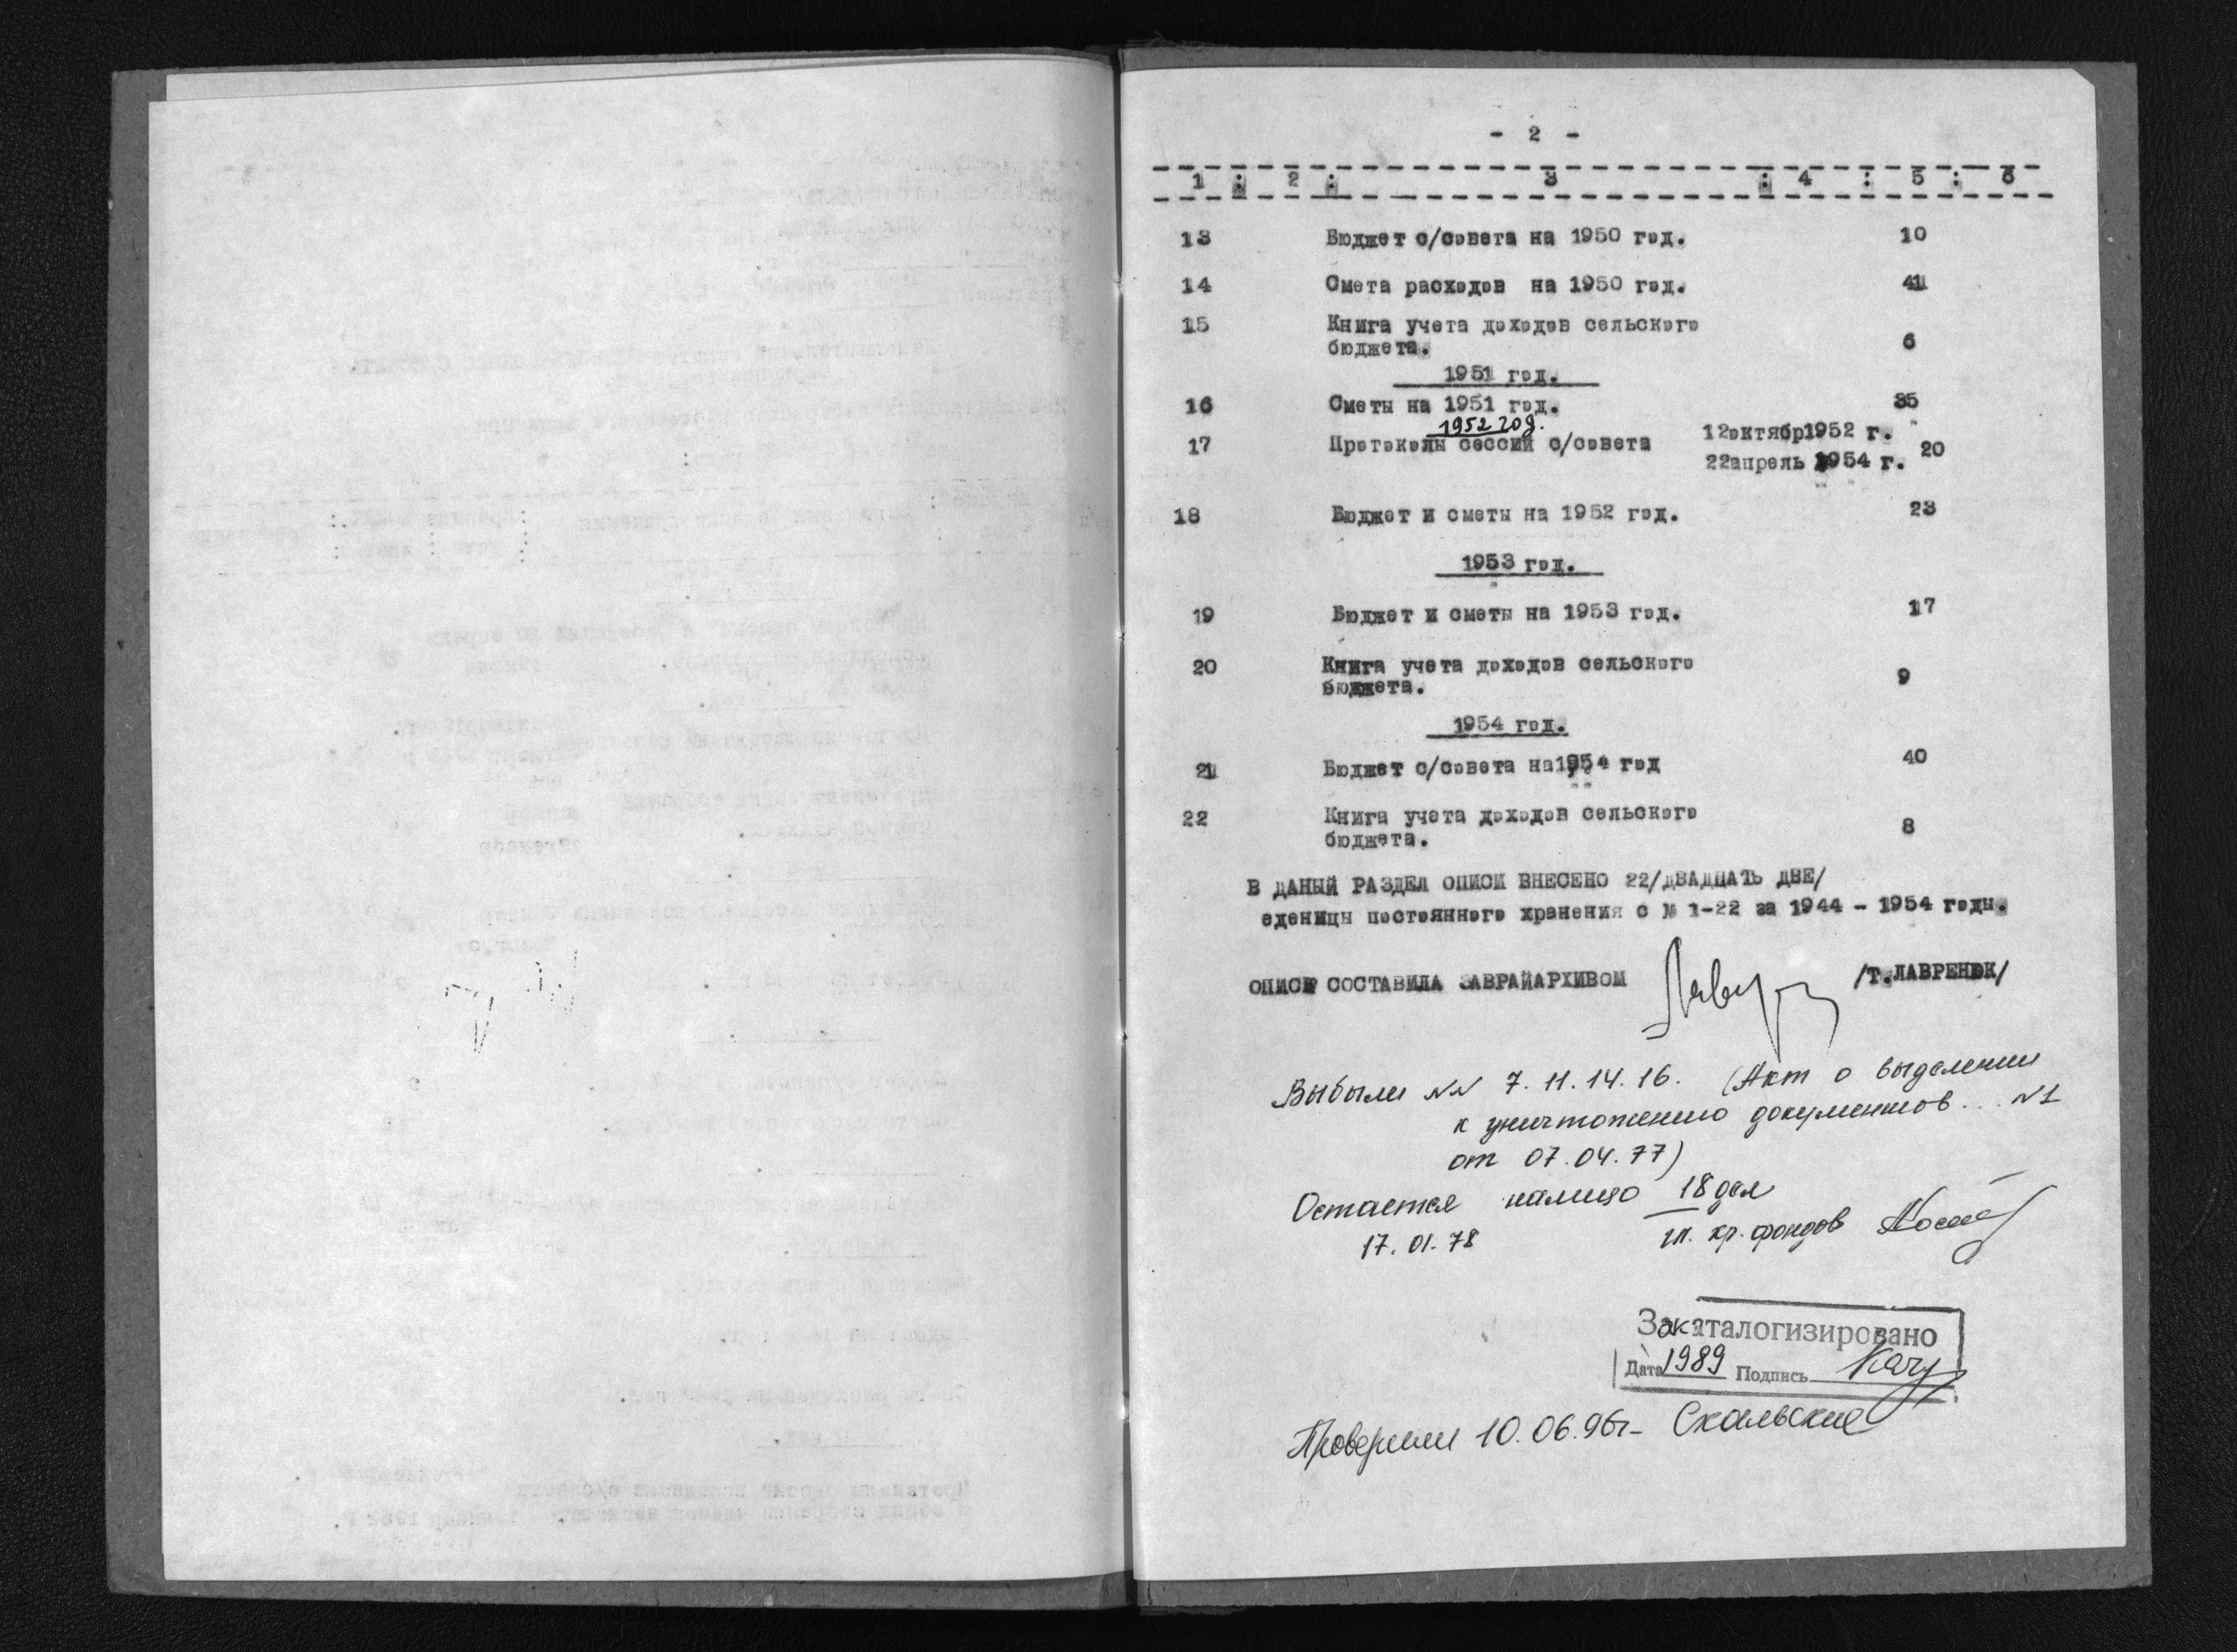 - 2 -
1 : 2 : 3 : 4 : 5 : 6
13 Бюджет с/совета на 1950 год. 10
14 Смета расходов на 1950 год. 41
15 Книга учета доходов сельского
бюджета. 6
1951 год.
16 Сметы на 1951 год. 35
1952 год.
17 Протоколы сессий с/совета 12октябр1952 г.
22апрель 1954 г. 20
18 Бюджет и сметы на 1952 год. 23
1953 год.
19 Бюджет и сметы на 1953 год. 17
20 Книга учета доходов сельского
бюджета. 9
1954 год.
21 Бюджет с/совета на1954 год 40
22 Книга учета доходов сельского
бюджета. 8
В ДАНЫЙ РАЗДЕЛ ОПИСИ ВНЕСЕНО 22/ДВАДЦАТЬ ДВЕ/
еденицы постоянного хранения с № 1-22 за 1944 - 1954 годы.
ОПИСЬ СОСТАВИЛА ЗАВРАЙАРХИВОМ /Т.ЛАВРЕНЮК/
Выбыли NN 7. 11. 14. 16. (Акт о выделении
к уничтожению документов... N1
от 07.04.77)
Остается налицо 18 дел
17.01.78 гл. хр. фондов
Закаталогизировано
Дата 1989 Подпись
Проверили 10.06.96г-